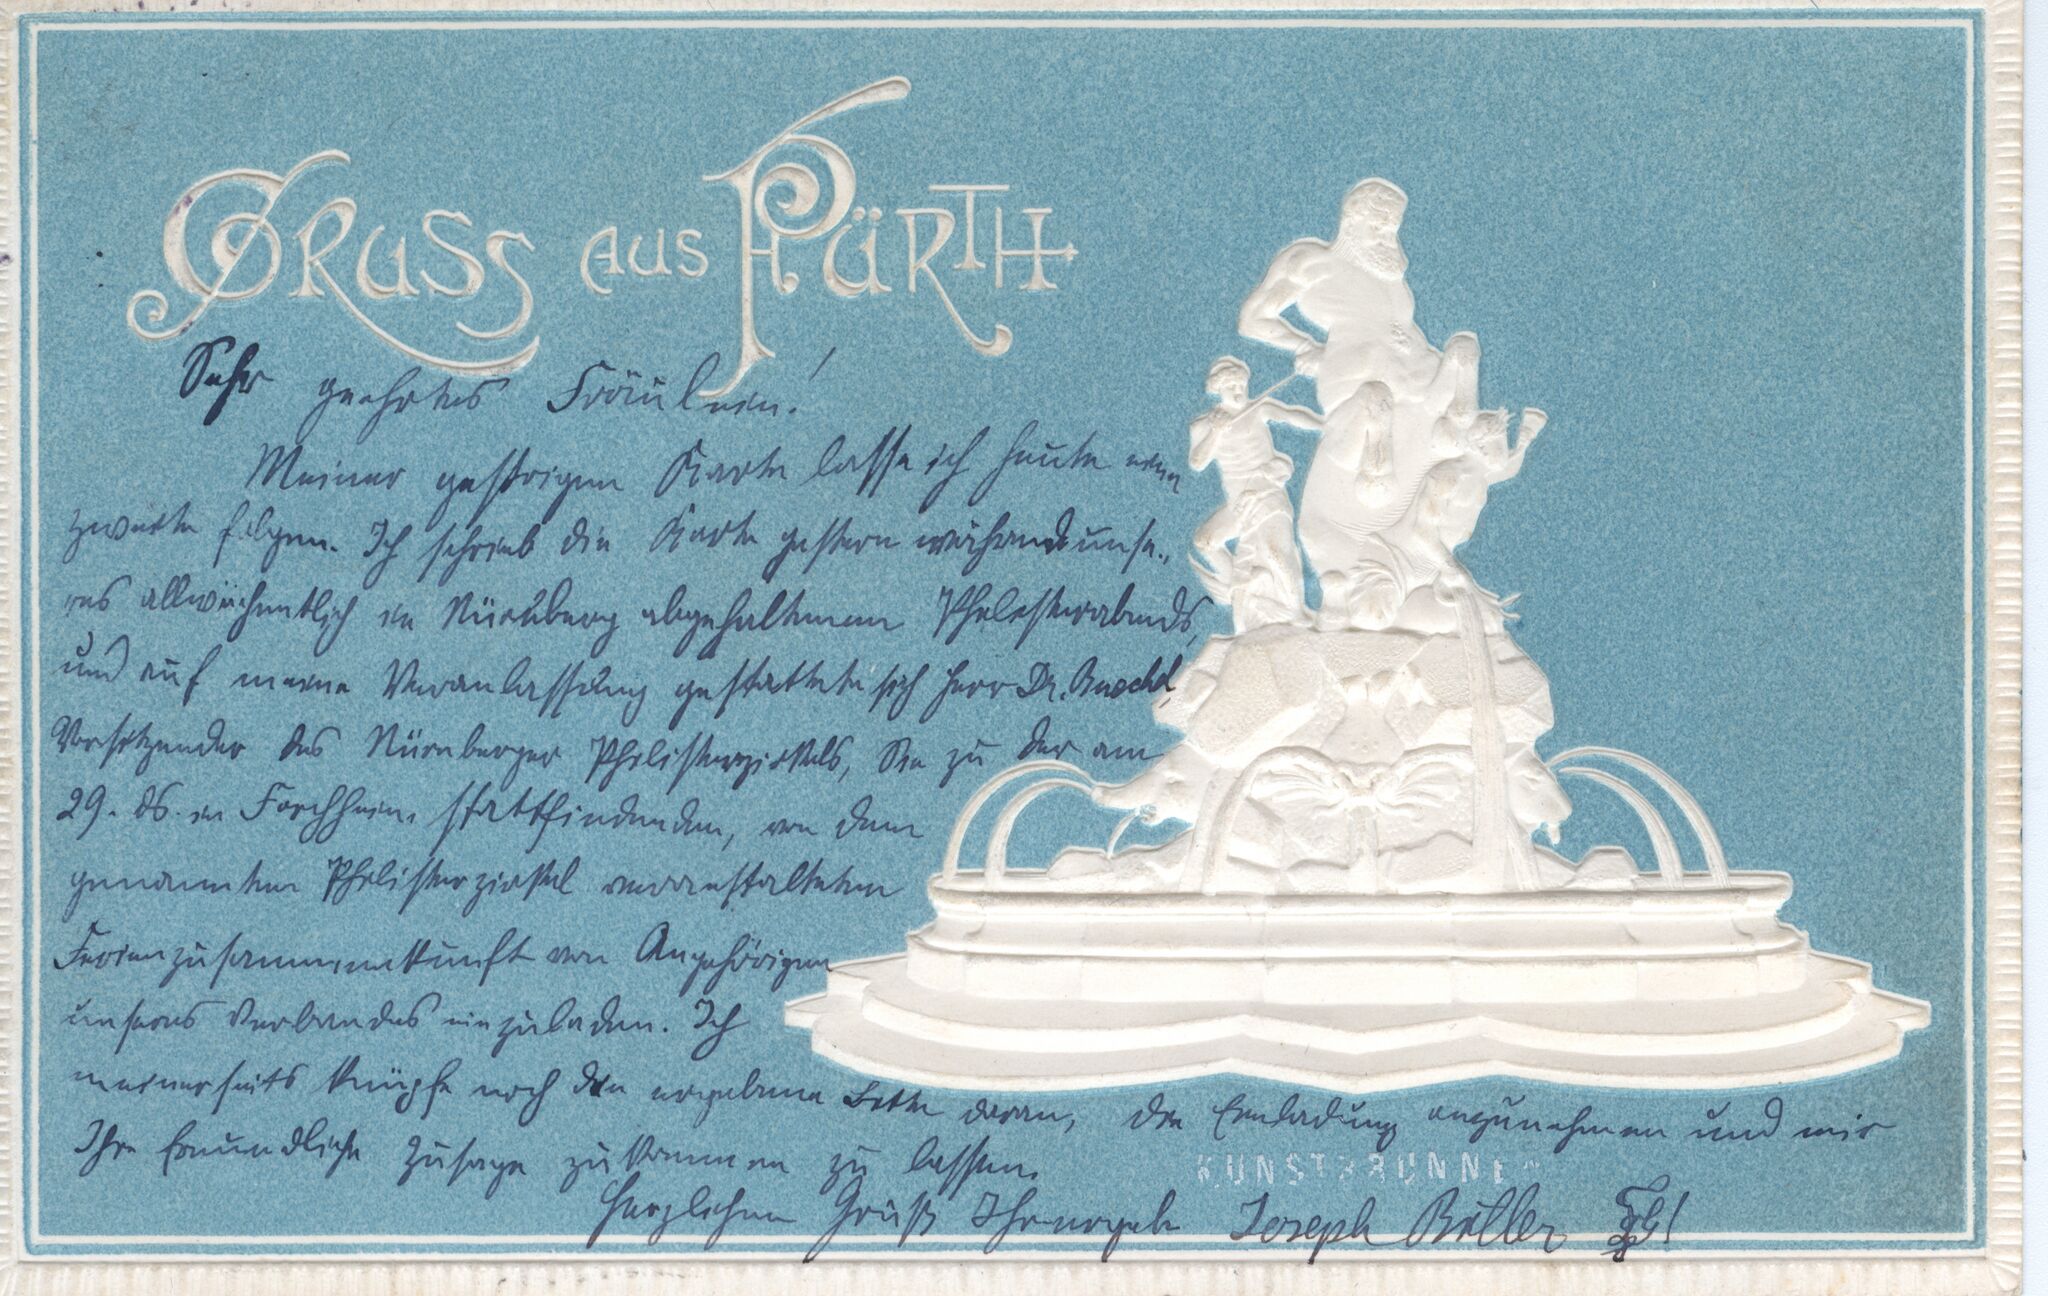 GRUSS AUS FÜRTH
Sehr geehrtes Fräulein!
Meiner gestrigen Karte lasse ich heute eine
zweite folgen. Ich schrieb die Karte gestern während unse-
res allwöchentlich in Nürnberg abgehaltenen Philisterabends,
und auf meine Veranlassung gestattete sich Herr Dr.
Vorsitzender des Nürnberger Philisterzirkels, Sie zu der am
29. ds. in Forchheim stattfindenden, von dem
genannten Philisterzirkel veranstalteten
Ferienzusammenkunft von Angehörigen
unseres Verbandes einzuladen. Ich
meinerseits knüpfe noch die ergebene Bitte daran, die Einladung anzunehmen und mir
Ihre freundliche Zusage zukommen zu lassen.
KUNSTBRUNNEN
Herzlichen Gruß Ihr ergeb. Joseph Biller